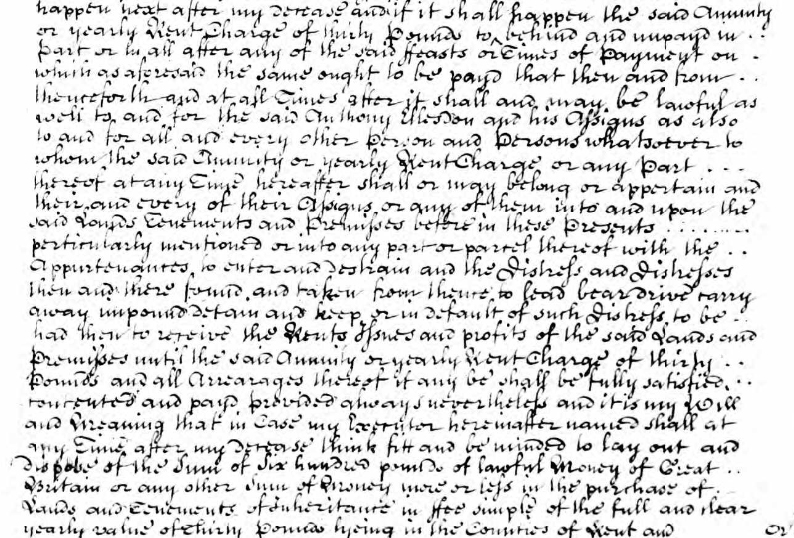 happen next after my decease and if it shall happen the said Annuity
or yearly Rent Charge of thirty Pounds to behind and unpaid in . .
Part or in all after any of the said ffeasts or Times of Payment on .
which as aforesaid the same ought to be payd that then and from .
thenceforth and at all Times after it shall and may be lawful as
well to and for the said Anthony and his Assigns as also
to and for all and every other Person and Persons whatsoever to
whom the said Annuity or yearly Rent Charge or any Part . . .
thereof at any Time hereafter shall or may belong or appertain and
their and every of their Assigns or any of them into and upon the
said Lands Tenements and Premisses before in these Presents . . . . . . . .
perticularly mentioned or into any part or parcel thereof with the . .
Appurtenances to enter and destrain and the Distress and Distresses
then and there found and taken from thence to lead bear drive carry
away impound detain and keep or in default of such Distress to be . .
had then to receive the Rents Issues and profits of the said Lands and
Premisses until the said Annuity or yearly Rent Charge of thirty . .
Pounds and all Arrearages thereof if any be shall be fully satisfied . .
contented and payd Provided always nevertheless and it is my Will
and Meaning that in Case my Executor hereinafter named shall at
any Time after my decease think fitt and be minded to lay out and
dispose of the Sum of Six hundred pounds of lawful Money of Great . .
Britain or any other Sum of Money more or less in the purchase of .
Lands and Tenements of Inheritance in ffee simple of the full and clear
yearly value of Thirty Pounds lyeing in the Counties of Kent and
Or